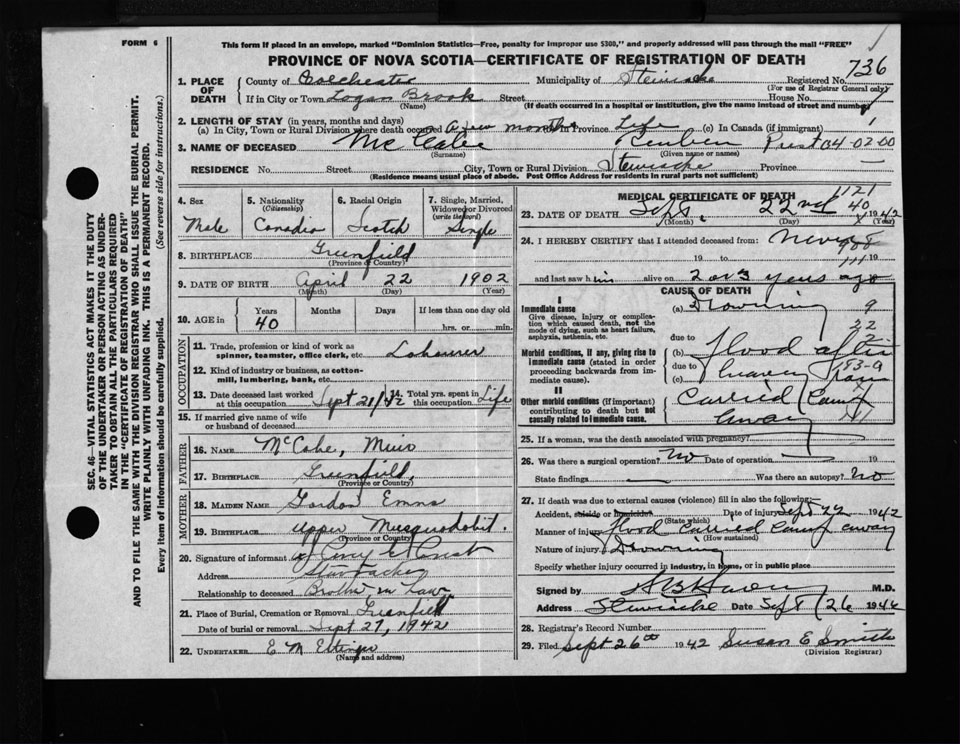 FORM 6
This form if placed in an envelope, marked "Dominion Statistics—Free, penalty for improper use $300," and properly addressed will pass through the mail "FREE"
PROVINCE OF NOVA SCOTIA—CERTIFICATE OF REGISTRATION OF DEATH
1. PLACE OF DEATH
County of Colchester Municipality of Stewiacke Registered No. 736
(For use of Registrar General only)
If in City or Town Logan Brook Street House No.
(Name) (If death occurred in a hospital or institution, give the name instead of street and number)
2. LENGTH OF STAY (in years, months and days)
(a) In City, Town or Rural Division where death occurred a few months In Province Life (c) In Canada (if immigrant)
3. NAME OF DECEASED McCabe Reuben 04-02-00
(Surname) (Given name or names)
RESIDENCE No. Street City, Town or Rural Division Stewiacke Province
(Residence means usual place of abode. Post Office Address for residents in rural parts not sufficient)
4. Sex
Male
5. Nationality
(Citizenship)
Canadia
6. Racial Origin
Scotch
7. Single, Married, Widowed or Divorced
(write the word)
Single
8. BIRTHPLACE Greenfield
(Province or Country)
9. DATE OF BIRTH April 22 1902
(Month) (Day) (Year)
10. AGE in Years Months Days If less than one day old
40 hrs. or min.
OCCUPATION
11. Trade, profession or kind of work as
spinner, teamster, office clerk, etc. Labourer
12. Kind of industry or business, as cotton-
mill, lumbering, bank, etc.
13. Date deceased last worked at this occupation Sept 21/42 14. Total yrs. spent in this occupation Life
15. If married give name of wife
or husband of deceased
FATHER
16. NAME McCabe, Muir
17. BIRTHPLACE Greenfield,
(Province or Country)
MOTHER
18. MAIDEN NAME Gordon Emma
19. BIRTHPLACE Upper Musquodobit.
(Province or Country)
20. Signature of informant
Address
Relationship to deceased Brother in Law
21. Place of Burial, Cremation or Removal Greenfield
Date of burial or removal Sept 27, 1942
22. UNDERTAKER E M Ettinger
(Name and address)
MEDICAL CERTIFICATE OF DEATH
1121
40
23. DATE OF DEATH Sept. 22nd 1942
(Month) (Day) (Year)
24. I HEREBY CERTIFY that I attended deceased from: Never
19 to 19
and last saw him alive on 2 or 3 years ago
CAUSE OF DEATH
I
Immediate cause
Give disease, injury or complication which caused death, not the mode of dying, such as heart failure, asphyxia, asthenia, etc.
(a) Drowning 9
due to
Morbid conditions, if any, giving rise to immediate cause (stated in order proceeding backwards from immediate cause).
(b) flood after
due to heavy rain 183-9
(c)
II
Other morbid conditions (if important) contributing to death but not causally related to immediate cause.
Carried Camp
away
25. If a woman, was the death associated with pregnancy?
26. Was there a surgical operation? No Date of operation 19
State findings Was there an autopsy? No
27. If death was due to external causes (violence) fill in also the following:
Accident, suicide or homicide Date of injury Sept 22 1942
(State which)
Manner of injury flood carried Camp away
(How sustained)
Nature of injury Drowning
Specify whether injury occurred in industry, in home, or in public place
Signed by M.D.
Address Stewiacke Date Sept/26 1942
28. Registrar's Record Number
29. Filed Sept 26th 1942 Susan E Smith
(Division Registrar)
SEC. 46—VITAL STATISTICS ACT MAKES IT THE DUTY
OF THE UNDERTAKER OR PERSON ACTING AS UNDER-
TAKER TO OBTAIN ALL THE PARTICULARS REQUIRED
IN THE "CERTIFICATE OF REGISTRATION OF DEATH"
AND TO FILE THE SAME WITH THE DIVISION REGISTRAR WHO SHALL ISSUE THE BURIAL PERMIT.
WRITE PLAINLY WITH UNFADING INK. THIS IS A PERMANENT RECORD.
Every item of information should be carefully supplied. (See reverse side for instructions.)